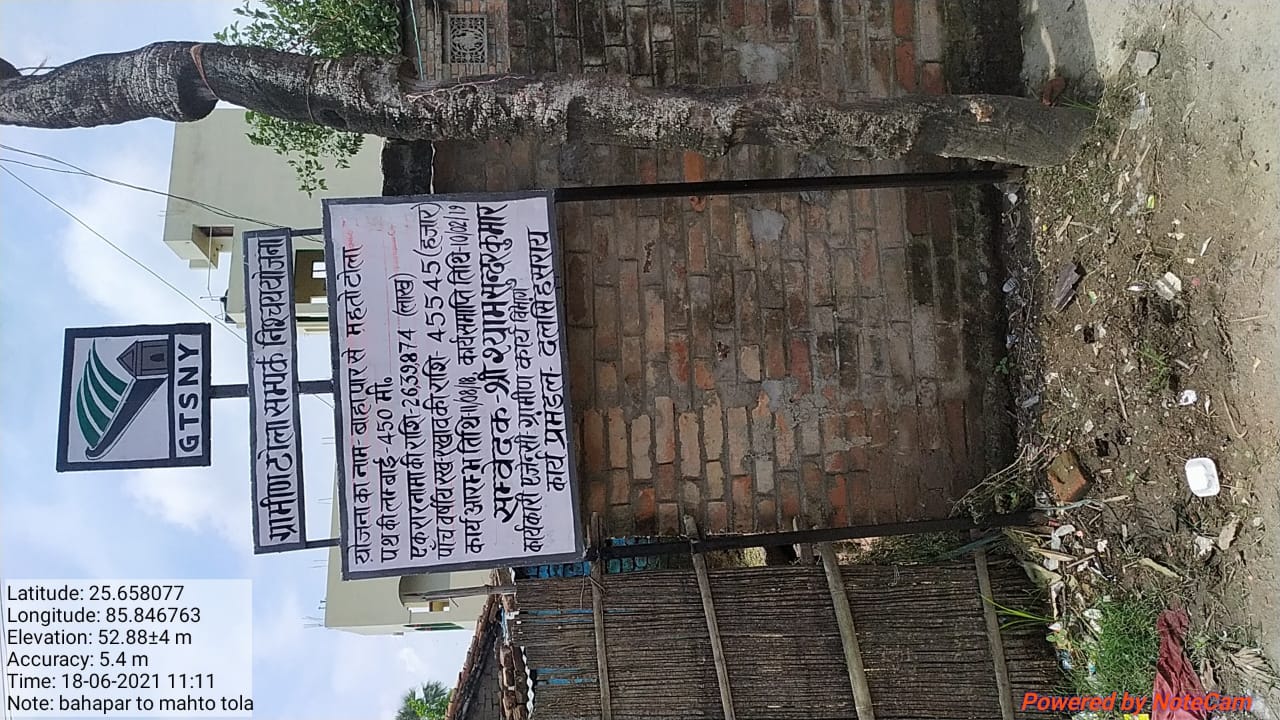 GTSNY
ग्रामीण टोला सम्पर्क निश्चय योजना
योजना का नाम- बाहा पार से महतो टोला
पथ की लम्बाई- 450 मी०
एकरारनामा की राशि-2639874 (लाख)
पाँच वर्षीय रख रखाव की राशि- 45545 (हजार)
कार्य आरम्भ तिथि-11/08/18, कार्य समाप्ति तिथि-10/02/19
सम्वेदक-श्री श्याम सुन्दर कुमार
कार्यकारी एजेन्सी- ग्रामीण कार्य विभाग
कार्य प्रमंडल- दलसिंहसराय
Latitude: 25.658077
Longitude: 85.846763
Elevation: 52.88±4 m
Accuracy: 5.4 m
Time: 18-06-2021 11:11
Note: bahapar to mahto tola
Powered by NoteCam